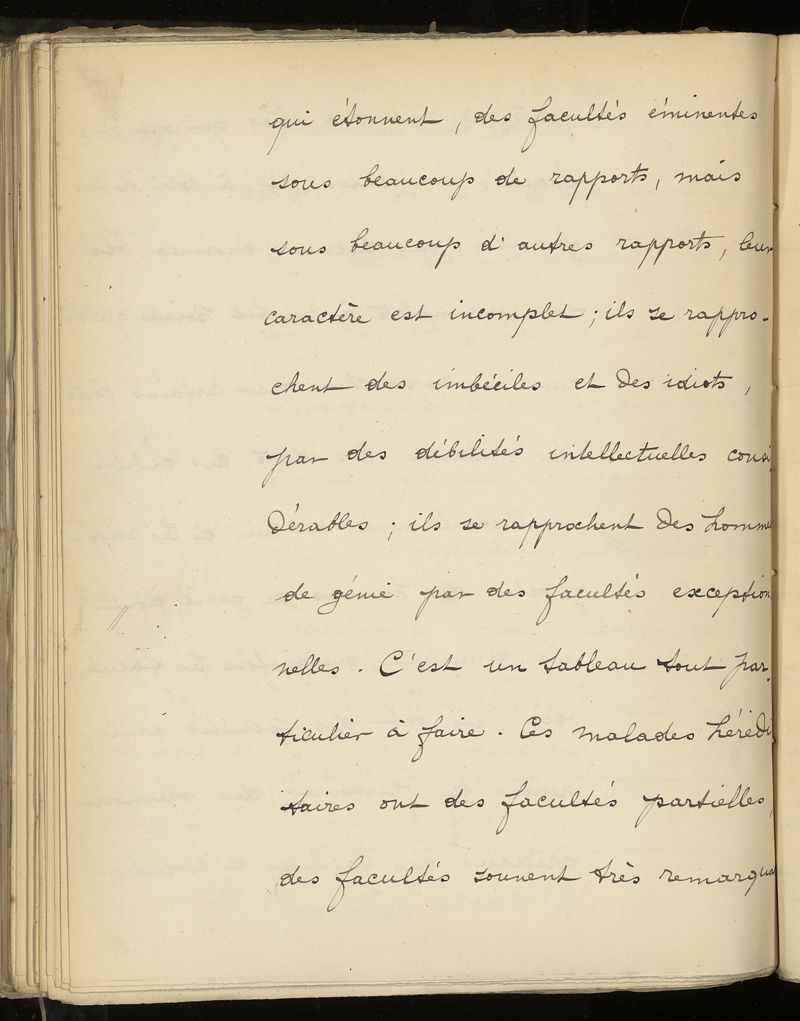 qui étonnent, des facultés éminentes
sous beaucoup de rapports, mais
sous beaucoup d'autres rapports, leur
caractère est incomplet ; ils se rappro-
chent des imbéciles et des idiots,
par des débilités intellectuelles consi
dérables ; ils se rapprochent des homme
de génie par des facultés exception
nelles. C'est un tableau tout par-
ticulier à faire. Ces malades hérédi
taires ont des facultés partielles,
des facultés souvent très remarqua